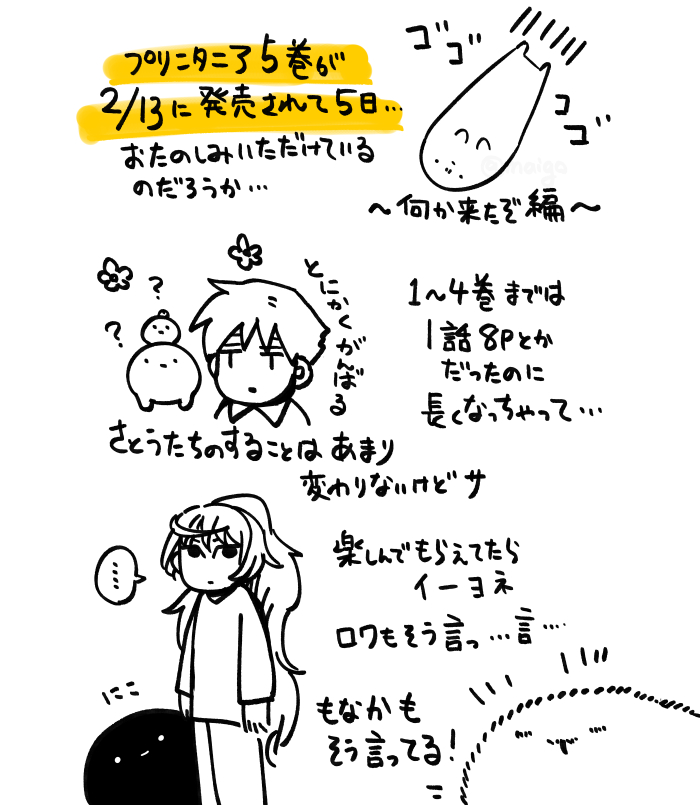 プリニタニア5巻が
2/13に発売されて5日…
おたのしみいただけている
のだろうか…
ゴゴ゛
ゴゴ゛
〜何か来たぞ編〜
とにかくがんばる
?
?
1〜4巻までは
1話8Pとか
だったのに
長くなっちゃって…
さとうたちのすることはあまり
変わりないけどサ
……
楽しんでもらえてたら
イーヨネ
ロワもそう言っ…言…
にこ
もなかも
そう言ってる!